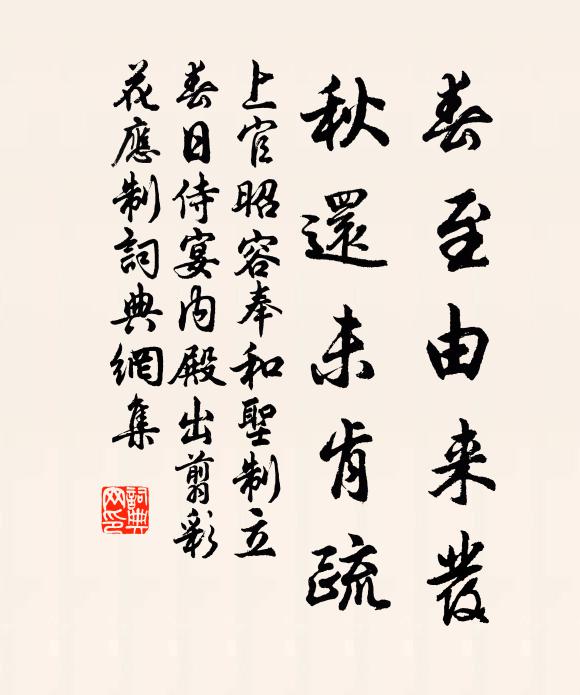 春至由来發
秋還未肯疏
上官昭容奉和聖制立
春日侍宴内殿出翦彩
花應制詞典網集
詞典網印